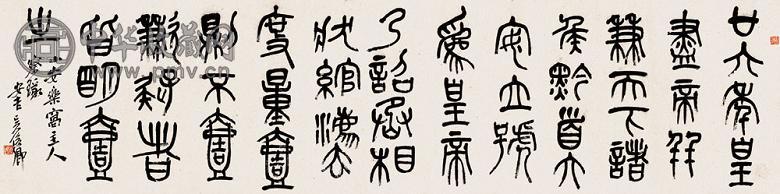 廿六年皇
盡帝并
兼天下諸
侯黔首大
安立號
為皇帝
乃詔丞相
狀綰灋
度量壹
則不壹
歉疑者
皆明壹
之
安樂窩主人
安吉吳俊卿
www.pmv.cn